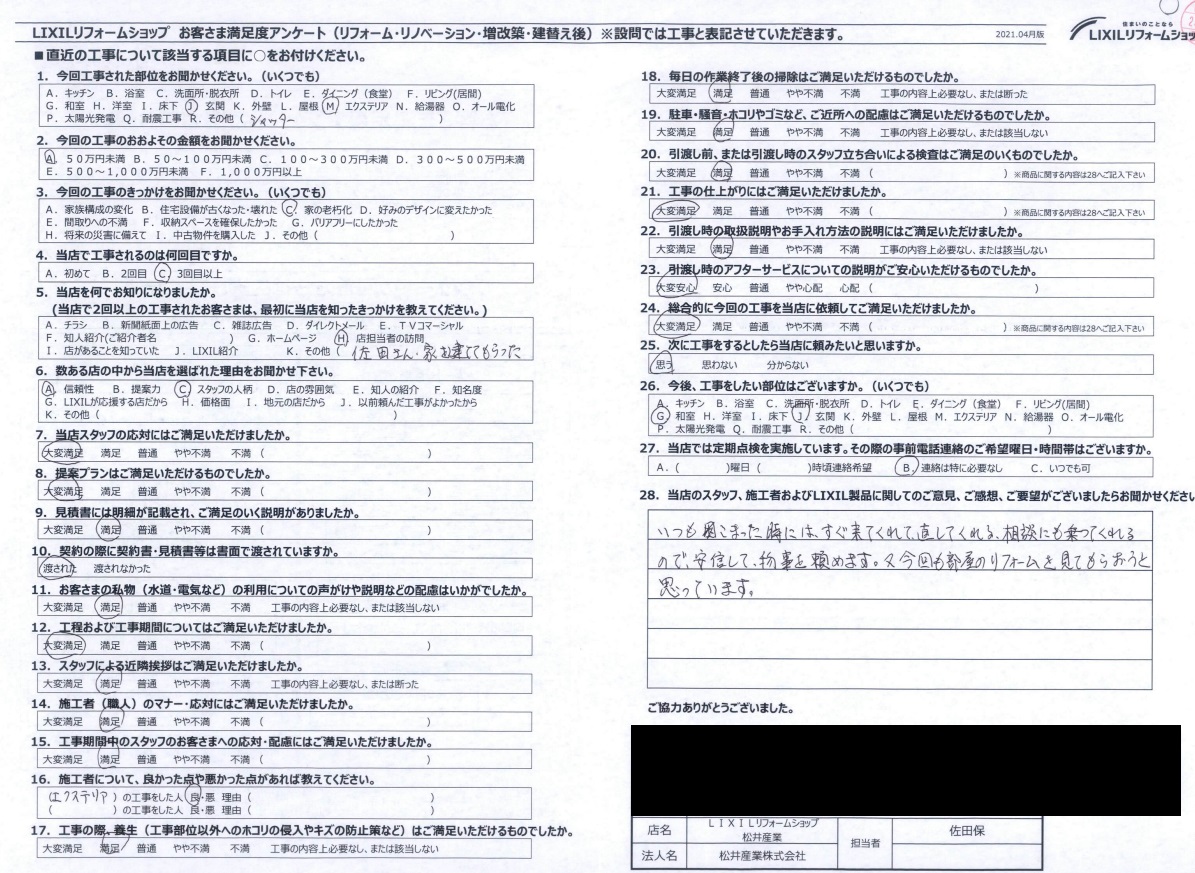 LIXILリフォームショップ お客さま満足度アンケート（リフォーム・リノベーション・増改築・建替え後）※設問では工事と表記させていただきます。
2021.04月版
住まいのことなら
LIXILリフォームショップ
■直近の工事について該当する項目に○をお付けください。
1．今回工事された部位をお聞かせください。（いくつでも）
A．キッチン B．浴室 C．洗面所・脱衣所 D．トイレ E．ダイニング（食堂） F．リビング(居間)
G．和室 H．洋室 I．床下 J．玄関 K．外壁 L．屋根 M．エクステリア N．給湯器 O．オール電化
P．太陽光発電 Q．耐震工事 R．その他（ シャッター ）
2．今回の工事のおおよその金額をお聞かせください。
A．５０万円未満 B．５０～１００万円未満 C．１００～３００万円未満 D．３００～５００万円未満
E．５００～１,０００万円未満 F．１,０００万円以上
3．今回の工事のきっかけをお聞かせください。（いくつでも）
A．家族構成の変化 B．住宅設備が古くなった・壊れた C．家の老朽化 D．好みのデザインに変えたかった
E．間取りへの不満 F．収納スペースを確保したかった G．バリアフリーにしたかった
H．将来の災害に備えて I．中古物件を購入した J．その他（ ）
4．当店で工事されるのは何回目ですか。
A．初めて B．2回目 C．3回目以上
5．当店を何でお知りになりましたか。
（当店で２回以上の工事されたお客さまは、最初に当店を知ったきっかけを教えてください。）
A．チラシ B．新聞紙面上の広告 C．雑誌広告 D．ダイレクトメール E．ＴＶコマーシャル
F．知人紹介(ご紹介者名 ） G．ホームページ H．店担当者の訪問
I．店があることを知っていた J．LIXIL紹介 K．その他（ 佐田さん・家を建ててもらった
6．数ある店の中から当店を選ばれた理由をお聞かせ下さい。
A．信頼性 B．提案力 C．スタッフの人柄 D．店の雰囲気 E．知人の紹介 F．知名度
G．LIXILが応援する店だから H．価格面 I．地元の店だから J．以前頼んだ工事がよかったから
K．その他（ ）
7．当店スタッフの応対にはご満足いただけましたか。
大変満足 満足 普通 やや不満 不満（ ）
8．提案プランはご満足いただけるものでしたか。
大変満足 満足 普通 やや不満 不満（ ）
9．見積書には明細が記載され、ご満足のいく説明がありましたか。
大変満足 満足 普通 やや不満 不満（ ）
10．契約の際に契約書・見積書等は書面で渡されていますか。
渡された 渡されなかった
11．お客さまの私物（水道・電気など）の利用についての声がけや説明などの配慮はいかがでしたか。
大変満足 満足 普通 やや不満 不満 工事の内容上必要なし、または該当しない
12．工程および工事期間についてはご満足いただけましたか。
大変満足 満足 普通 やや不満 不満（ ）
13．スタッフによる近隣挨拶はご満足いただけましたか。
大変満足 満足 普通 やや不満 不満 工事の内容上必要なし、または断った
14．施工者（職人）のマナー・応対にはご満足いただけましたか。
大変満足 満足 普通 やや不満 不満（ ）
15．工事期間中のスタッフのお客さまへの応対・配慮にはご満足いただけましたか。
大変満足 満足 普通 やや不満 不満（ ）
16．施工者について、良かった点や悪かった点があれば教えてください。
（エクステリア ）の工事をした人 良・悪 理由（ ）
（ ）の工事をした人 良・悪 理由（ ）
17．工事の際、養生（工事部位以外へのホコリの侵入やキズの防止策など）はご満足いただけるものでしたか。
大変満足 満足 普通 やや不満 不満 工事の内容上必要なし、または該当しない
18．毎日の作業終了後の掃除はご満足いただけるものでしたか。
大変満足 満足 普通 やや不満 不満 工事の内容上必要なし、または断った
19．駐車・騒音・ホコリやゴミなど、ご近所への配慮はご満足いただけるものでしたか。
大変満足 満足 普通 やや不満 不満 工事の内容上必要なし、または該当しない
20．引渡し前、または引渡し時のスタッフ立ち合いによる検査はご満足のいくものでしたか。
大変満足 満足 普通 やや不満 不満（ ）※商品に関する内容は28へご記入下さい
21．工事の仕上がりにはご満足いただけましたか。
大変満足 満足 普通 やや不満 不満（ ）※商品に関する内容は28へご記入下さい
22．引渡し時の取扱説明やお手入れ方法の説明にはご満足いただけましたか。
大変満足 満足 普通 やや不満 不満 工事の内容上必要なし、または該当しない
23．引渡し時のアフターサービスについての説明がご安心いただけるものでしたか。
大変安心 安心 普通 やや心配 心配（ ）
24．総合的に今回の工事を当店に依頼してご満足いただけましたか。
大変満足 満足 普通 やや不満 不満（ ）※商品に関する内容は28へご記入下さい
25．次に工事をするとしたら当店に頼みたいと思いますか。
思う 思わない 分からない
26．今後、工事をしたい部位はございますか。（いくつでも）
A．キッチン B．浴室 C．洗面所・脱衣所 D．トイレ E．ダイニング（食堂） F．リビング(居間)
G．和室 H．洋室 I．床下 J．玄関 K．外壁 L．屋根 M．エクステリア N．給湯器 O．オール電化
P．太陽光発電 Q．耐震工事 R．その他（ ）
27．当店では定期点検を実施しています。その際の事前電話連絡のご希望曜日・時間帯はございますか。
A．（ ）曜日（ ）時頃連絡希望 B．連絡は特に必要なし C．いつでも可
28．当店のスタッフ、施工者およびLIXIL製品に関してのご意見、ご感想、ご要望がございましたらお聞かせください
いつも困こまった時には、すぐ来てくれて直してくれる、相談にも乗ってくれる
ので、安信して、物事を頼めます。又今回も部屋のリフォームを見てもらおうと
思っています。
ご協力ありがとうございました。
店名 ＬＩＸＩＬリフォームショップ 松井産業 担当者 佐田保
法人名 松井産業株式会社